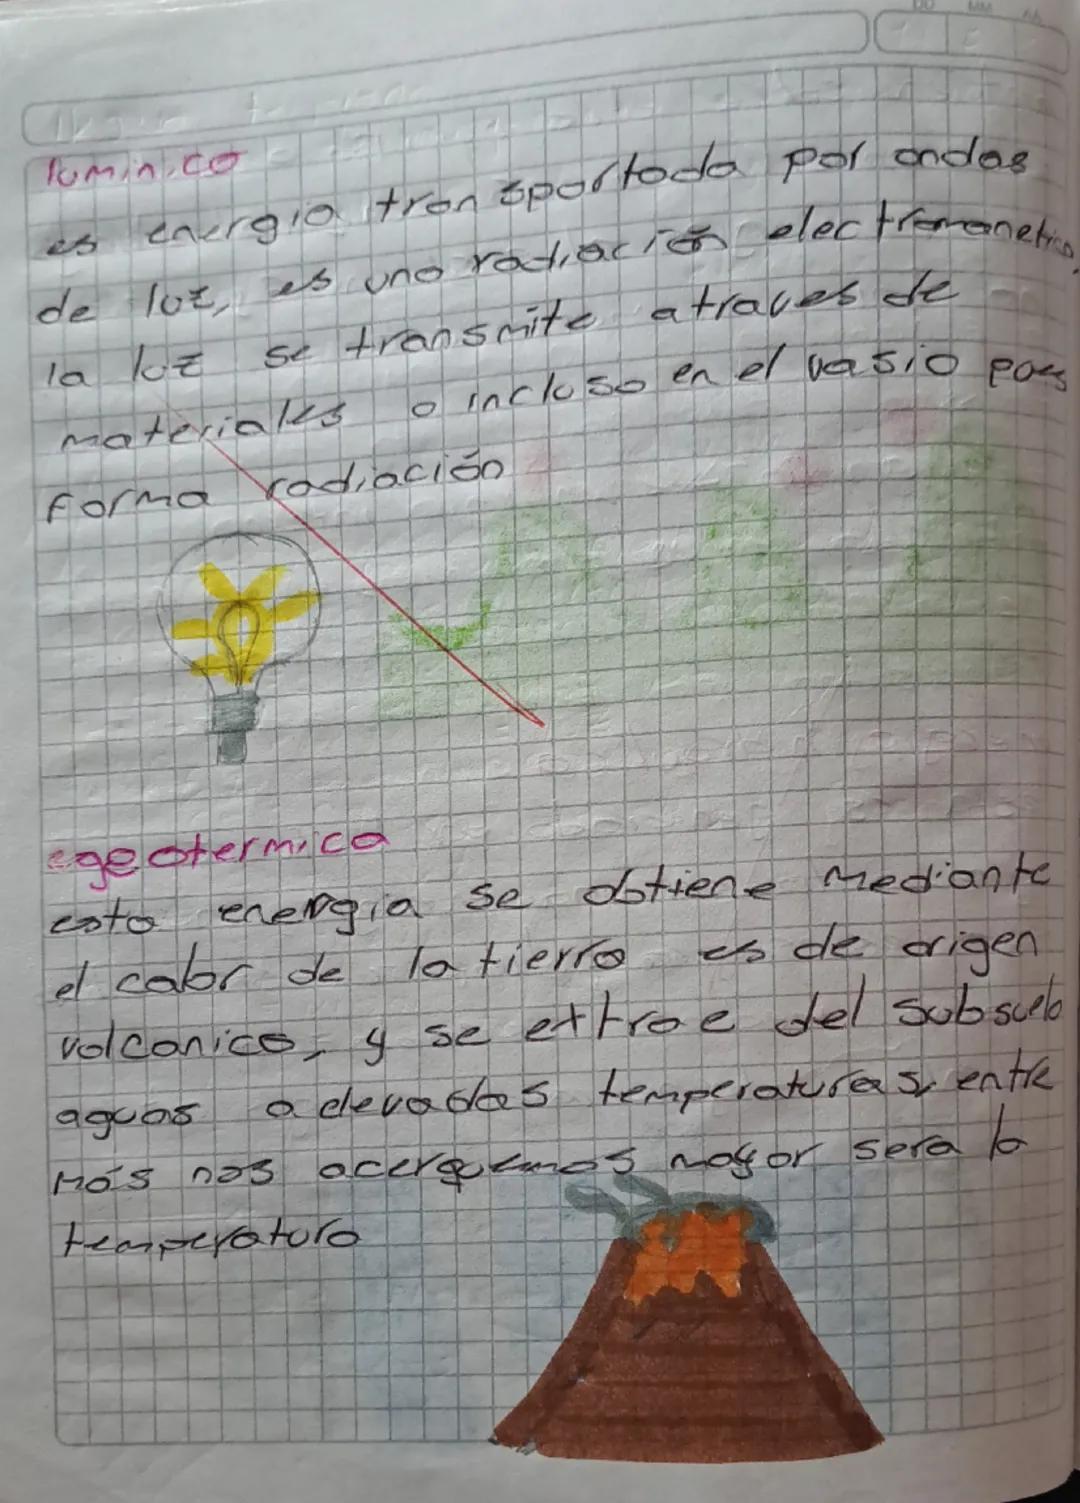 luminico
es energia transportada por ondas
de luz, es una radiación electromanetica,
la luz se transmite atraves de
materiales o incluso en el vasio pues
forma radiación
egeotermica
esta energia se obtiene mediante
el calor de la tierra es de origen
volcanico, y se extrae del subsuelo
aguas a elevadas temperaturas, entre
más nos acerquemos mayor sera la
temperatura